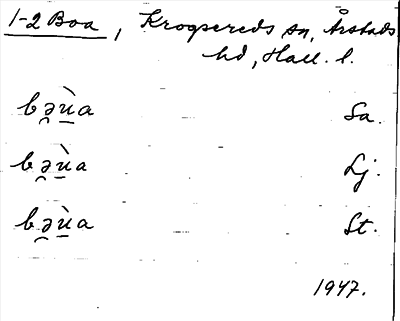 1-2 Boa, Krogsereds sn, Årstads
hd, Hall. l.
bə̯ù̱a Sa.
bə̯ù̱a Lj.
bə̯ù̱a St.
1947.